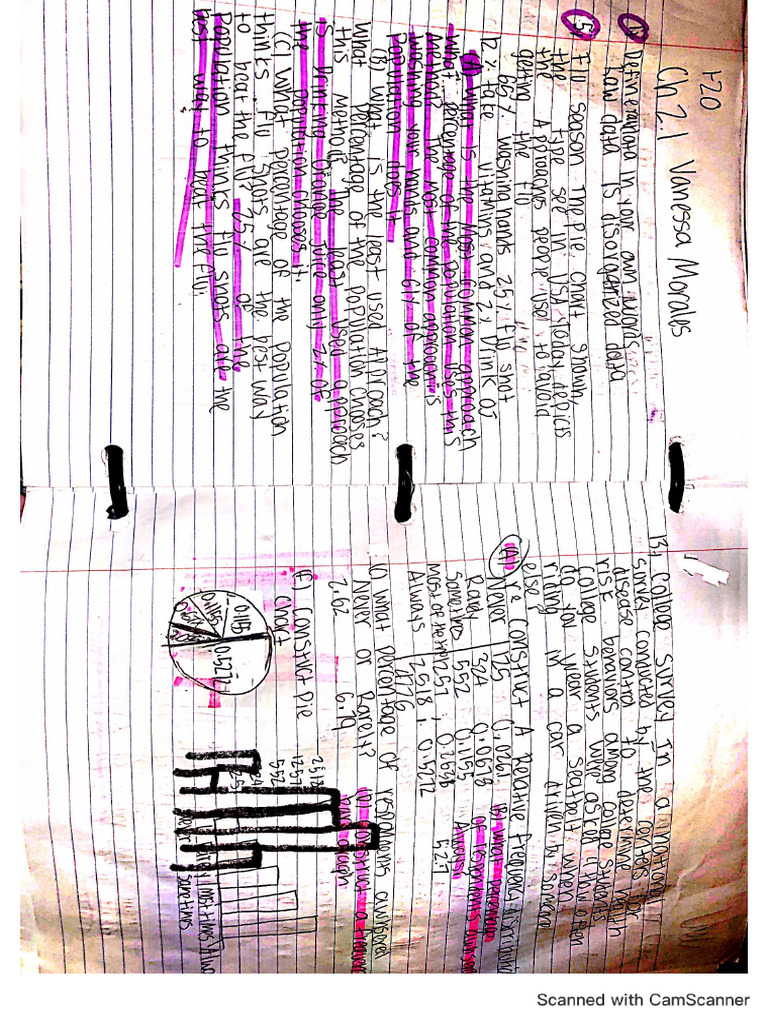 120
Ch 2.1 Vanessa Morales
Define data in your own words.
how data is disorganized data
5 Flu season The pie chart shown,
the type see in USA Today, depicts
the Approaches people use to avoid
getting the flu
65% washing hands 25% flu shot
12% take vitamins and 2% Drink OJ
(A) What is the most common approach
what percentage of the population uses this
Method? The most common approach is
washing your hands and 61% of the
Population does it
(B) what is the least used Approach?
What percentage of the population chooses
this method? the least used approach
is drinking orange juice only 2% of
the population chooses it.
(C) What percentage of the population
thinks flu shots are the best way
to beat the flu? 25% of the
Population thinks flu shots are the
best way to beat the flu.
13. College survey In a national
survey conducted by the centers for
disease control to determine health
risk behaviors among college students
college students were asked "How often
do you wear a seatbelt when
riding in a car driven by someone
else?
(A) Construct A Relative Frequency
Never 125 0.0261
Rarely 324 0.0678
Sometimes 552 0.1155
Most of the time 1257 0.2636
Always 2518 0.5272
4776
(B) what percentage
of respondents answer
Always
52.7
(C) What percentage of respondents answered
Never or Rarely?
2.62 6.79
(D) Construct a frequency
bar graph
(F) Construct pie
chart
0.1155
0.5272
2518
1257
552
324
125
Never rarely most times
sometimes